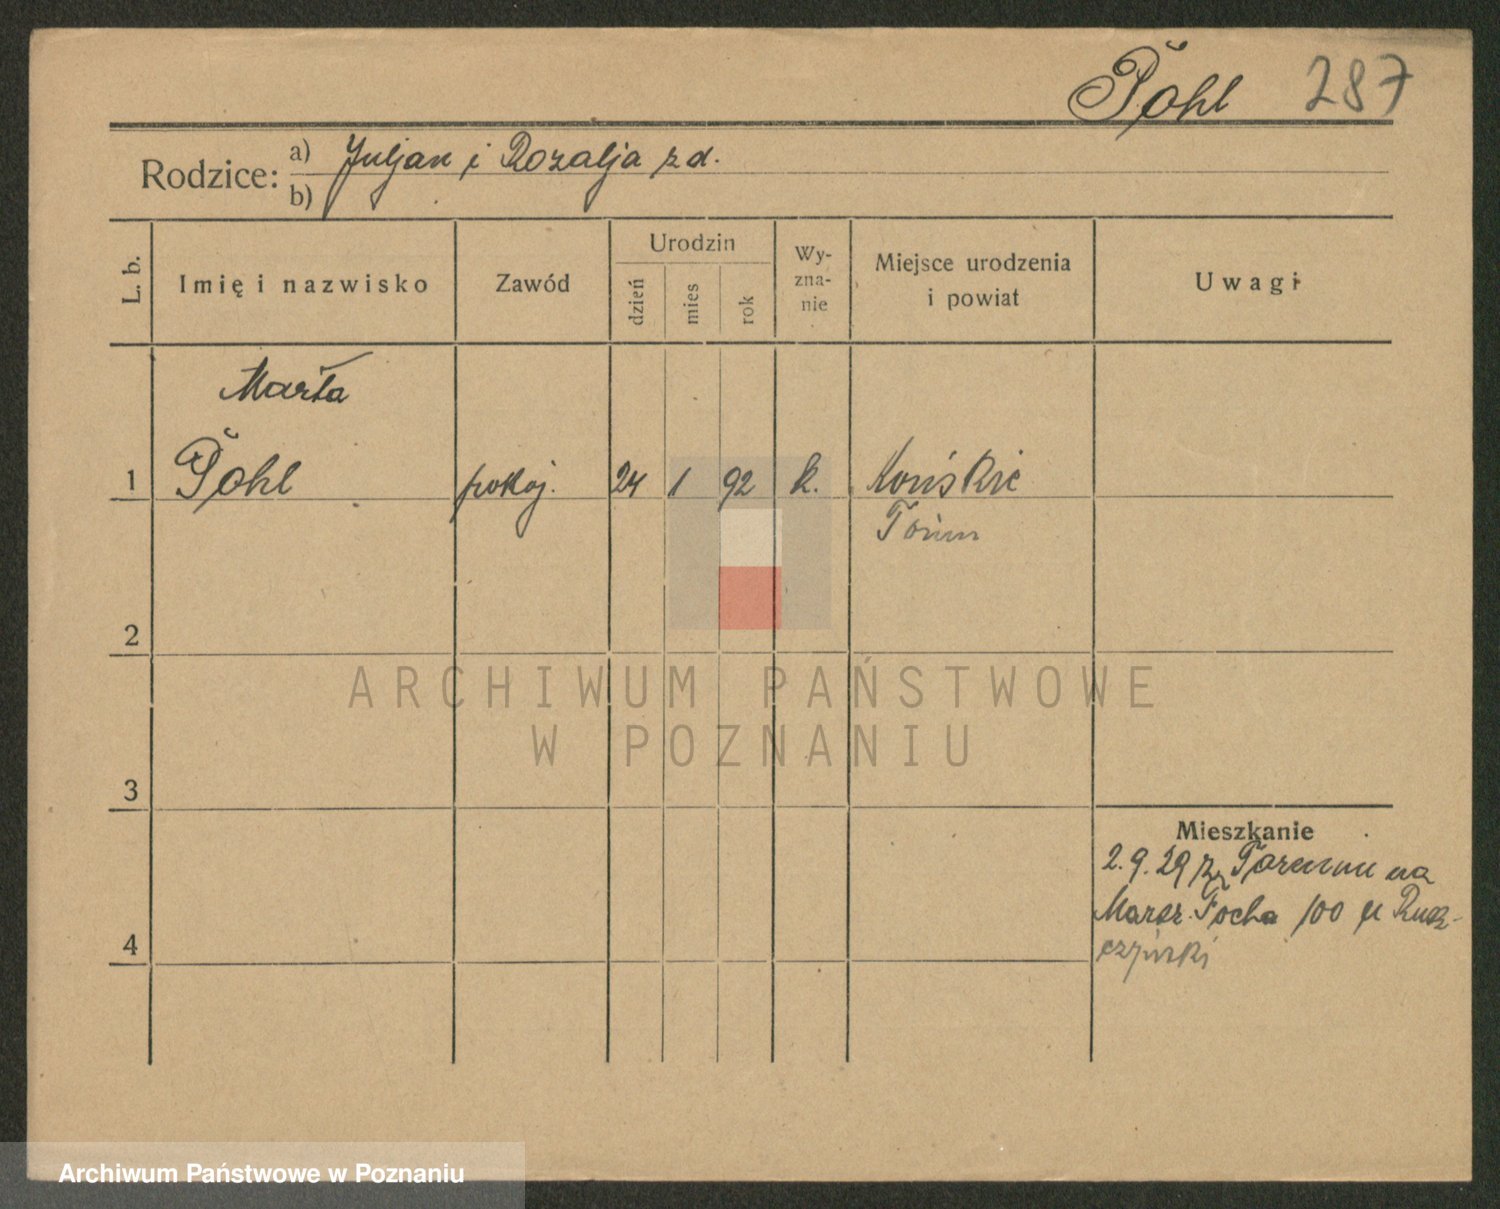 Pohl 287
Rodzice: a) Juljan i Rozalja z d.
b)
L. b.
Imię i nazwisko
Zawód
Urodzin
dzień
mies
rok
Wy-
zna-
nie
Miejsce urodzenia
i powiat
Uwagi
Marta
1 Pohl pokoj. 24 1 92 k. Końskie
Toruń
2
ARCHIWUM PAŃSTWOWE
W POZNANIU
3
Mieszkanie
2.9.29 z Torunia na
Marsz. Focha 100 u
4
Archiwum Państwowe w Poznaniu